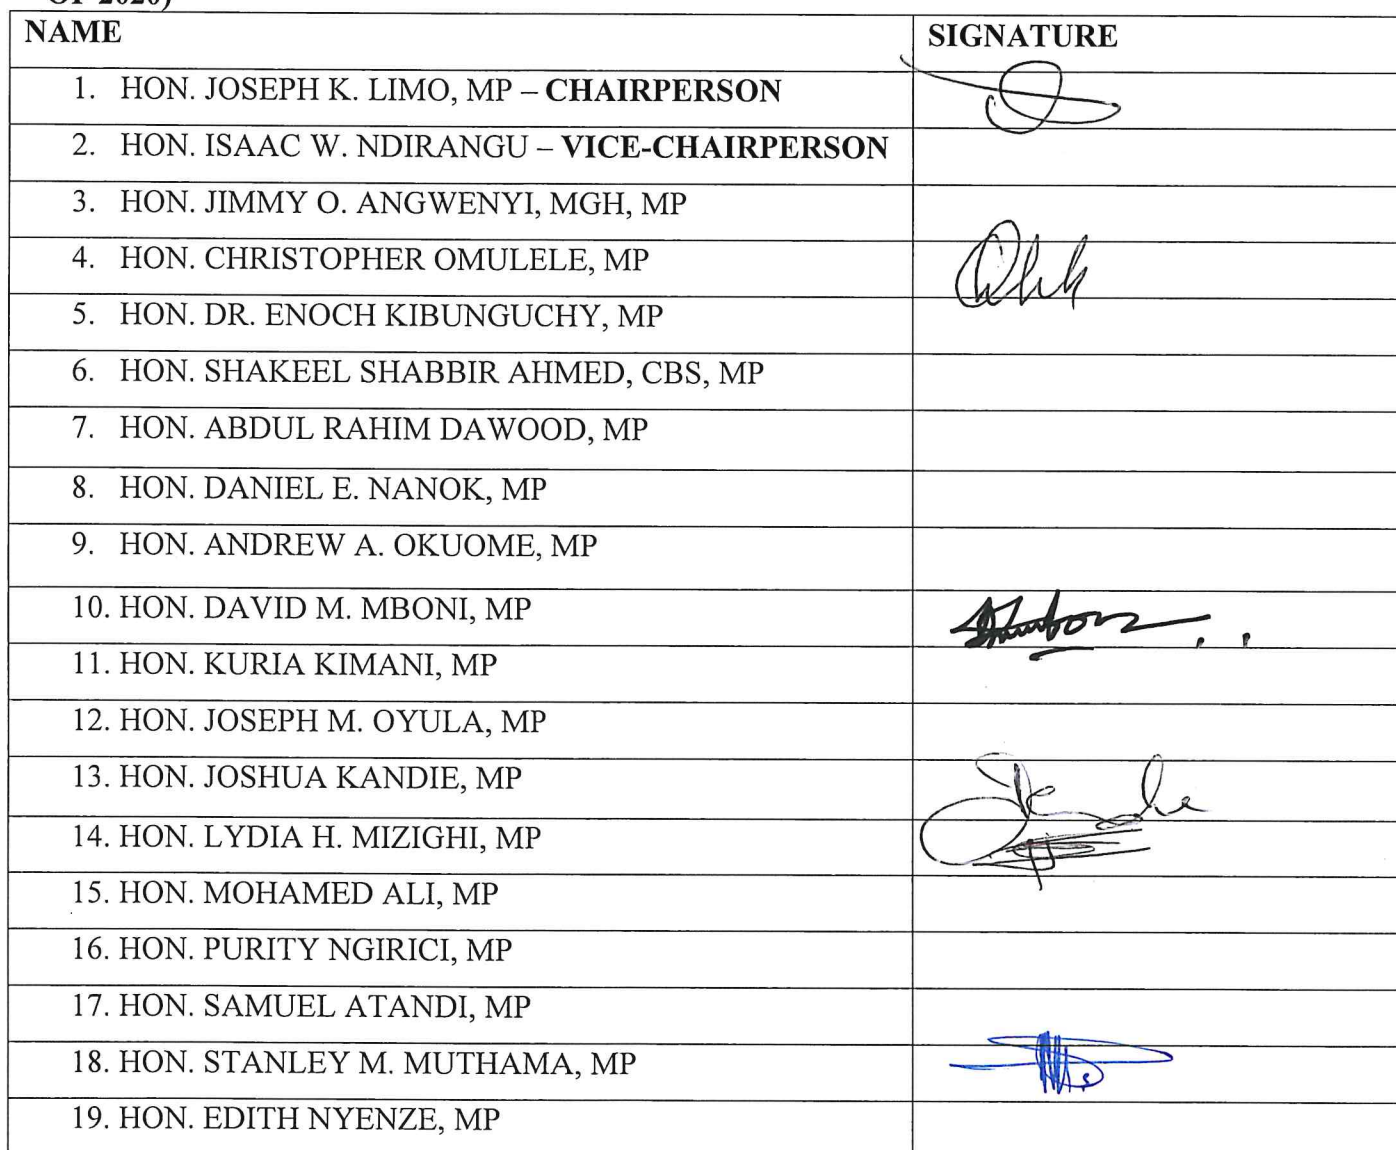 OF 2020)
NAME SIGNATURE
1. HON. JOSEPH K. LIMO, MP – CHAIRPERSON
2. HON. ISAAC W. NDIRANGU – VICE-CHAIRPERSON
3. HON. JIMMY O. ANGWENYI, MGH, MP
4. HON. CHRISTOPHER OMULELE, MP
5. HON. DR. ENOCH KIBUNGUCHY, MP
6. HON. SHAKEEL SHABBIR AHMED, CBS, MP
7. HON. ABDUL RAHIM DAWOOD, MP
8. HON. DANIEL E. NANOK, MP
9. HON. ANDREW A. OKUOME, MP
10. HON. DAVID M. MBONI, MP
11. HON. KURIA KIMANI, MP
12. HON. JOSEPH M. OYULA, MP
13. HON. JOSHUA KANDIE, MP
14. HON. LYDIA H. MIZIGHI, MP
15. HON. MOHAMED ALI, MP
16. HON. PURITY NGIRICI, MP
17. HON. SAMUEL ATANDI, MP
18. HON. STANLEY M. MUTHAMA, MP
19. HON. EDITH NYENZE, MP